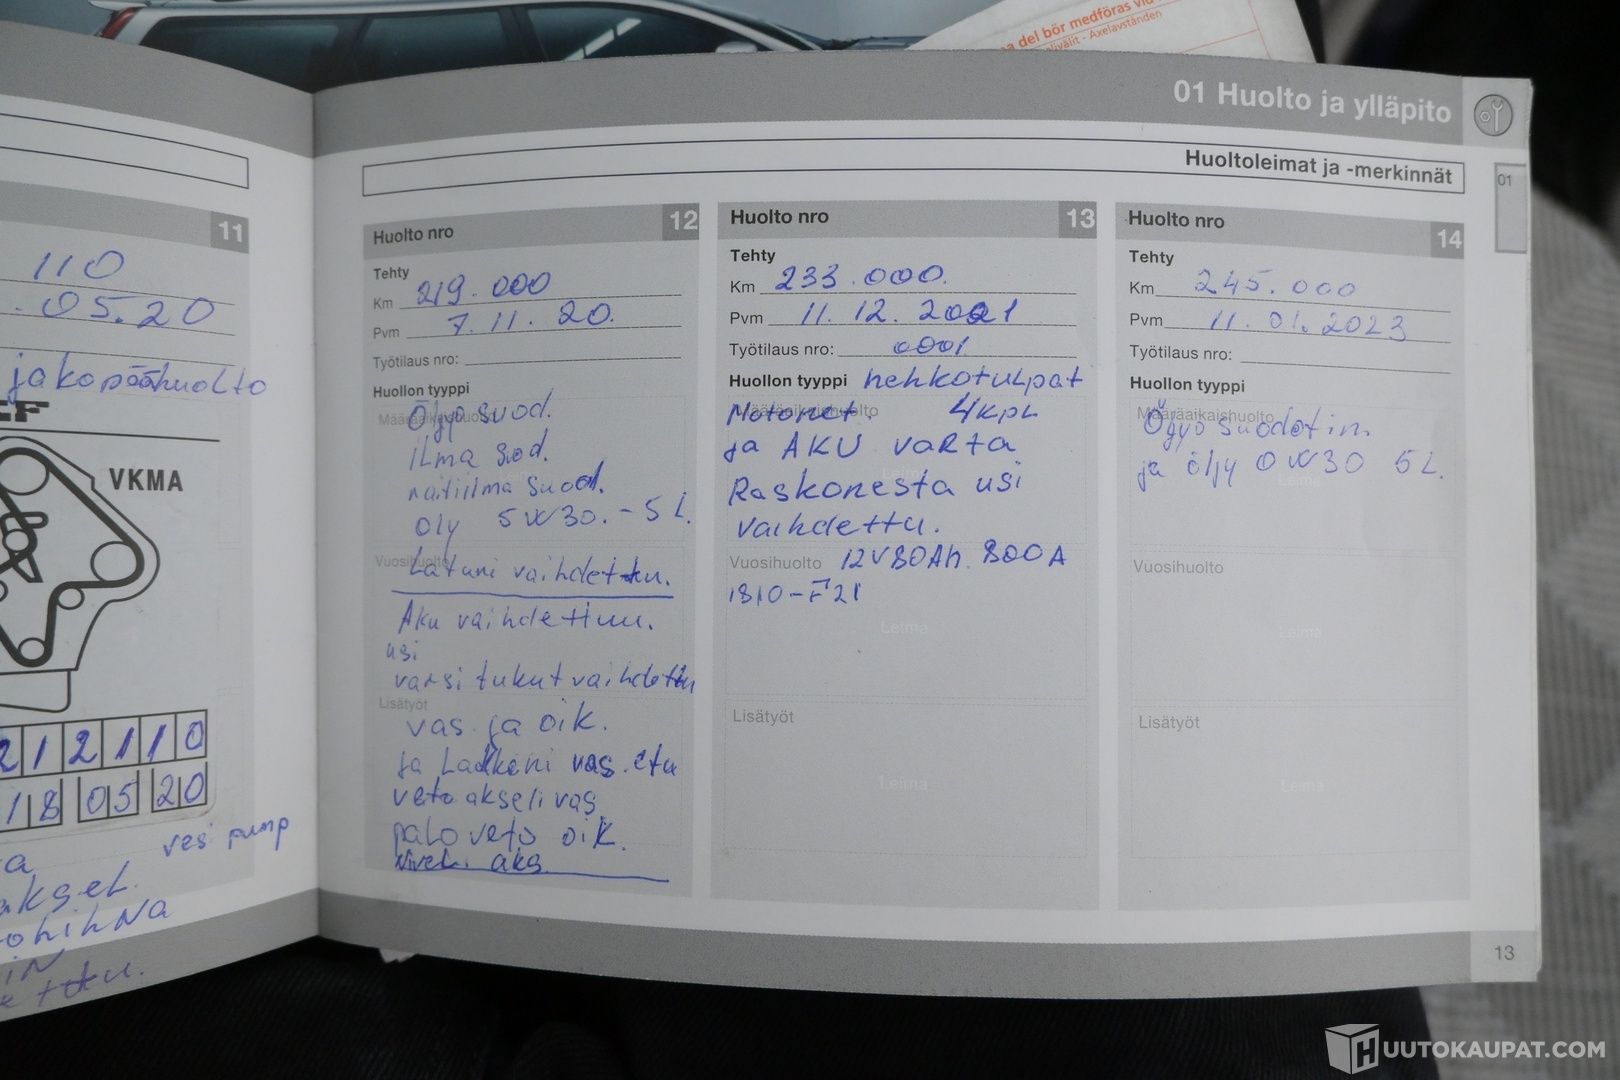 na del bör medföras vid
Akselivälit - Axelavständen
01 Huolto ja ylläpito
Huoltoleimat ja -merkinnät
01
11
110
.05.20
jakopäähuolto
VKMA
212110
18 05 20
vesi pump
aksel.
ohihNa
Huolto nro 12
Tehty
Km 219.000
Pvm 7.11.20.
Työtilaus nro:
Huollon tyyppi
Määräaikaishuolto
Ölyo suod.
ilma suod.
raitiilma suod.
Oly 5W30. - 5 L.
Vuosihuolto
Laturi vaihdettu.
Aku vaihdettuu.
usi
varsi tukut vaihdettu
Lisätyöt
vas ja oik.
ja Ladkeni vas.etu
veto akseli vas
palo veto oik.
Nivel. aks.
Huolto nro 13
Tehty
Km 233.000.
Pvm 11.12.2021
Työtilaus nro: 0001
Huollon tyyppi hehkotulpat
Määräaikaishuolto
Motonet. 4kpl
ja AKU VARTA
Raskonesta usi
vaihdettu.
Vuosihuolto 12V80Ah. 800A
1810-F21
Leima
Lisätyöt
Leima
Huolto nro 14
Tehty
Km 245.000
Pvm 11.01.2023
Työtilaus nro:
Huollon tyyppi
Määräaikaishuolto
Ölyo suodatin.
ja öljy 0W30 5L.
Leima
Vuosihuolto
Leima
Lisätyöt
Leima
13
HUUTOKAUPAT.COM